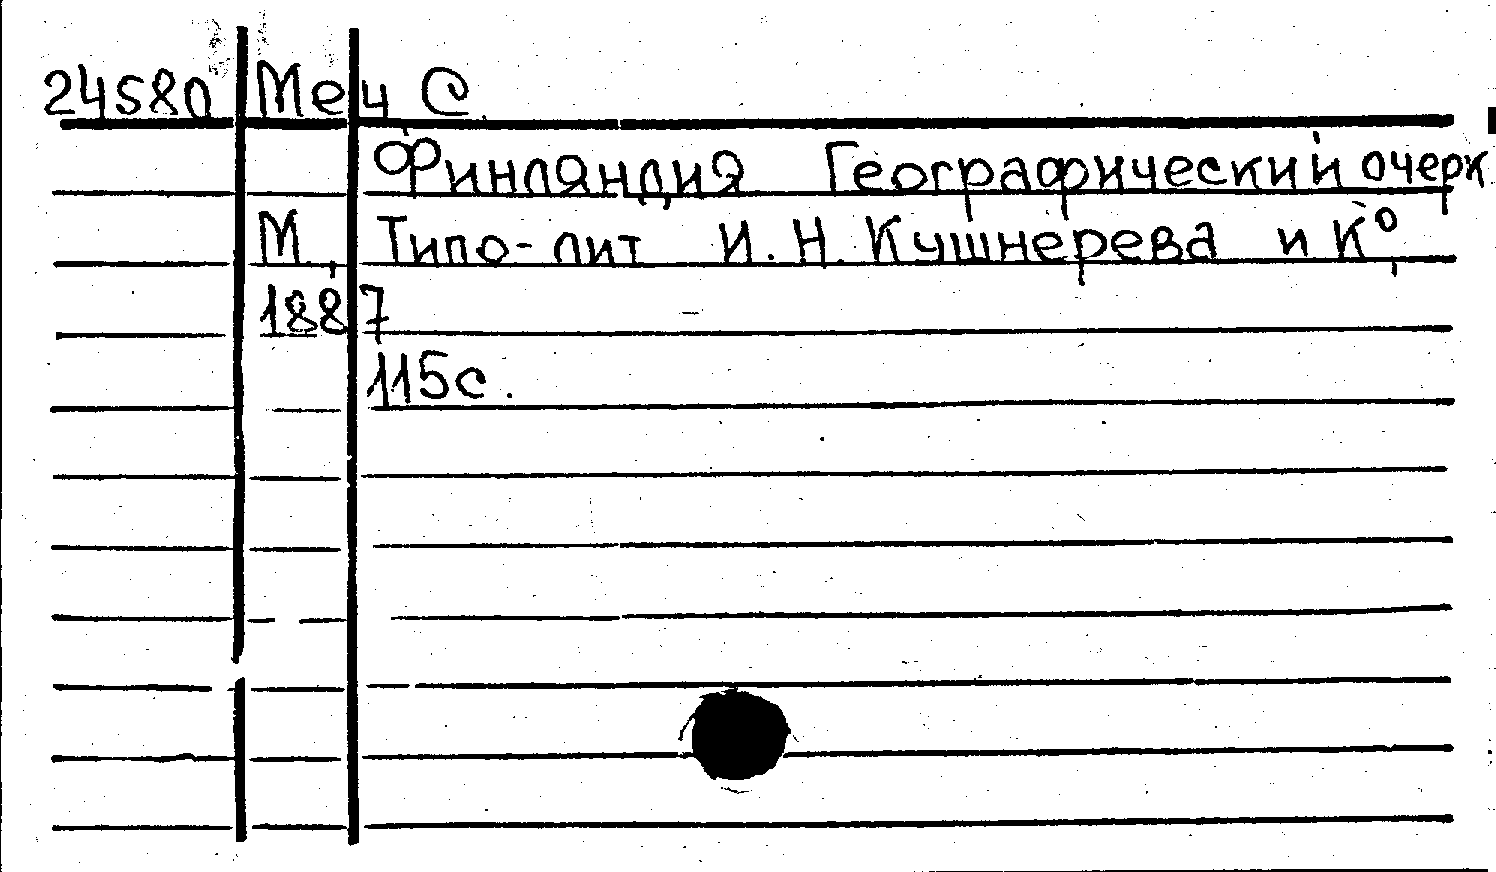 24580 Меч С.
Финляндия Географический очерк
М., Типо-лит И. Н. Кушнерева и К°,
1887
115с.